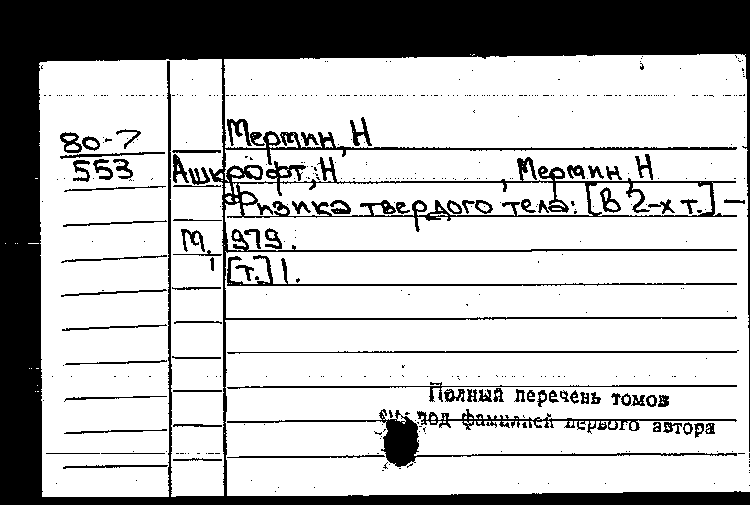 Мермин, Н
80-7
553
Ашкрофт, Н , Мермин, Н
Физика твердого тела: [В 2-х т.]. —
М., 1979.
[т.] 1.
Полный перечень томов
см. под фамилией первого автора